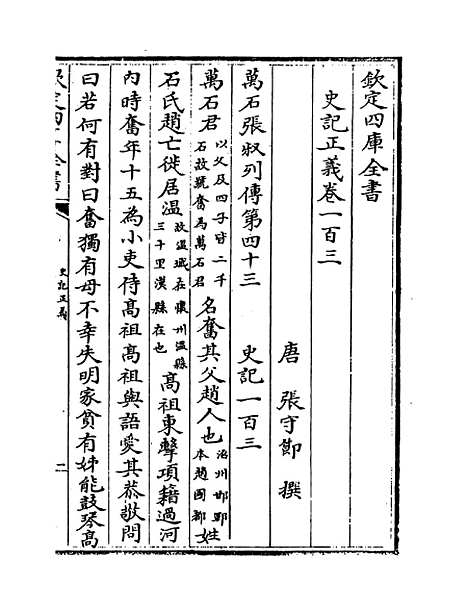 欽定四庫全書
史記正義卷一百三
唐 張守節 撰
萬石張叔列傳第四十三 史記一百三
萬石君以父及四子皆二千石故號奮為萬石君名奮其父趙人也洺州邯鄲本趙國都姓
石氏趙亡徙居溫故溫城在懷州溫縣三十里漢縣在也高祖東擊項籍過河
內時奮年十五為小吏侍高祖高祖與語愛其恭敬問
曰若何有對曰奮獨有母不幸失明家貧有姊能鼓琴高
欽定四庫全書
史記正義
一